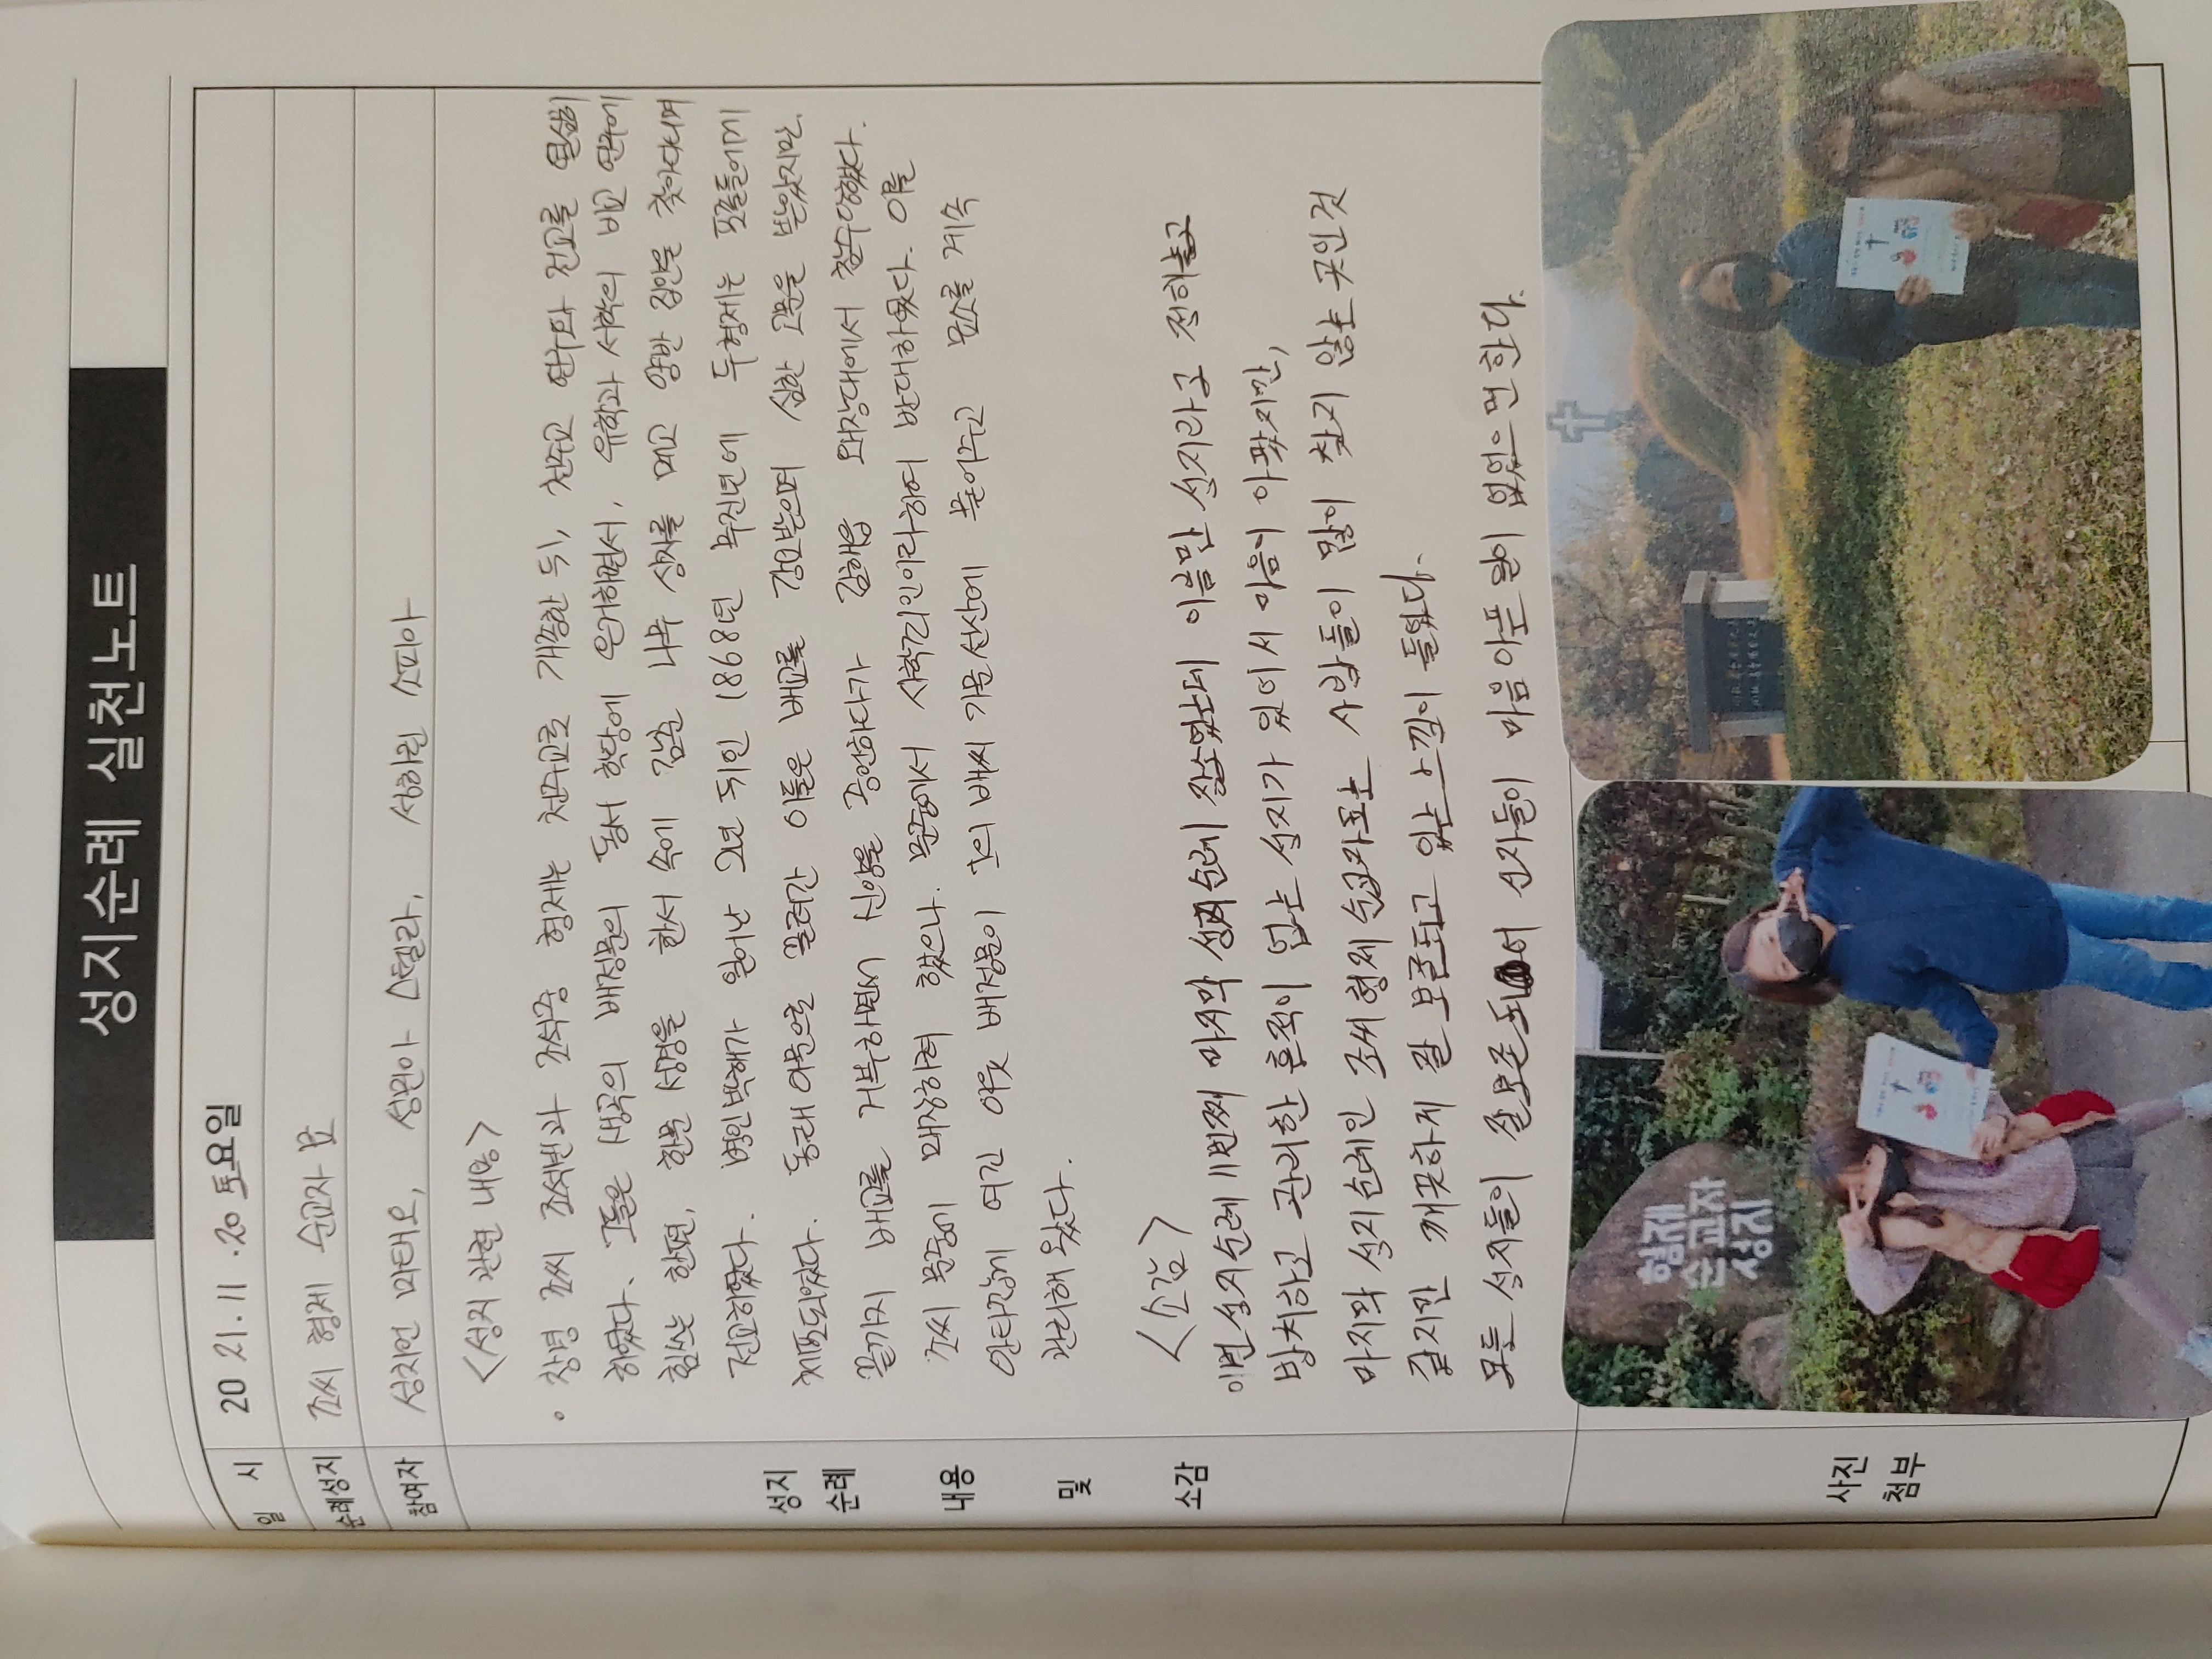 성지순례 실천노트
일 시 20 21. 11. 20 토요일
순례성지 조씨 형제 순교자 묘
참여자 성치언 마태오, 성현아 스텔라, 성하린 소피아
성지
순례
내용
및
소감
<성지 관련 내용>
• 창녕 조씨 조석빈과 조석증 형제는 천주교로 개종한 뒤, 천주교 연구와 전교를 열심히
하였다. 그들은 생곡의 배정문의 동서 학당에 은거하면서, 유학과 서학의 비교 연구에
힘쓰는 한편, 한문 성경을 한서 속에 감춘 나무 상자를 메고 양반 집안을 찾아다니며
전교하였다. 병인박해가 일어난 2년 뒤인 1868년 무진년에 두형제는 포졸들에게
체포되었다. 동래아문으로 끌려간 이들은 배교를 강요받으며 심한 고문을 받았지만,
끝까지 배교를 거부하면서 신앙을 증언하다가 김해읍 왜장대에서 참수당했다.
조씨 문중에 매장하려 했으나 문중에서 사학죄인이라하여 반대하였다. 이를
안타깝게 여긴 이웃 배정문이 그의 배씨 가문 선산에 묻어주고 묘소를 계속
관리해 왔다.
<소감>
이번 성지순례 11번째 마지막 성지 순례 장소였는데 이름만 성지라고 전하고
방치하고 관리한 흔적이 없는 성지가 있어서 마음이 아팠지만,
마지막 성지 순례인 조씨 형제 순교자묘는 사람들이 많이 찾지 않는 곳인것
같지만 깨끗하게 잘 보존되고 있는 느낌이 들었다.
모든 성지들이 잘 보존되어서 신자들이 마음 아픈 일이 없었으면 한다.
사진
첨부
형제
순교자
성지